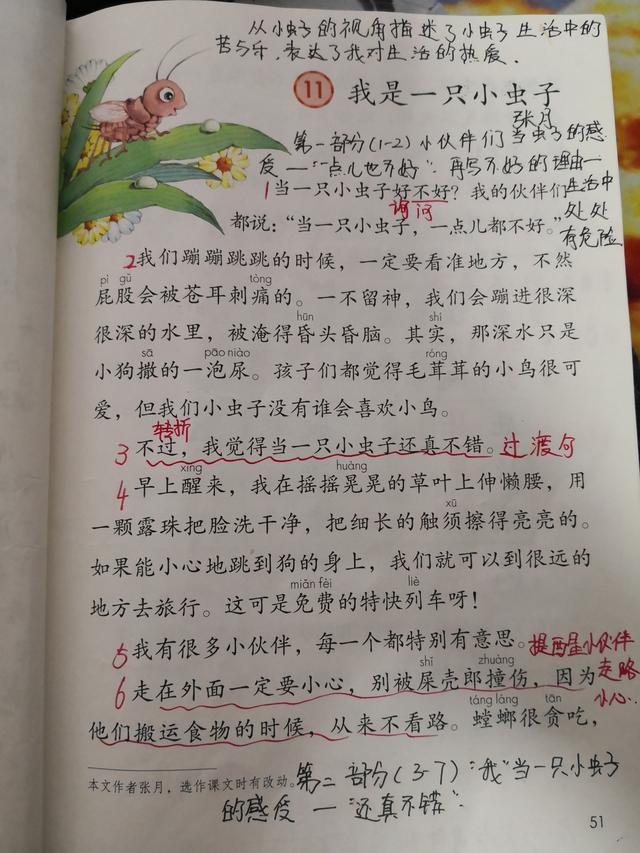 从小虫子的视角描述了小虫子生活中的
苦与乐,表达了我对生活的热爱.
11 我是一只小虫子
张月
第一部分(1-2)小伙伴们当虫子的感
受一"一点儿也不好".再写不好的理由一
生活中
处处
有危险
1当一只小虫子好不好?我的伙伴们
询问
都说:“当一只小虫子,一点儿都不好。”
2我们蹦蹦跳跳的时候,一定要看准地方,不然
pì gu tòng
屁股会被苍耳刺痛的。一不留神,我们会蹦进很深
hūn shí
很深的水里,被淹得昏头昏脑。其实,那深水只是
sā pāo niào róng
小狗撒的一泡尿。孩子们都觉得毛茸茸的小鸟很可
爱,但我们小虫子没有谁会喜欢小鸟。
转折
3 不过,我觉得当一只小虫子还真不错。过渡句
xǐng huàng
4 早上醒来,我在摇摇晃晃的草叶上伸懒腰,用
xū
一颗露珠把脸洗干净,把细长的触须擦得亮亮的。
如果能小心地跳到狗的身上,我们就可以到很远的
miǎn fèi liè
地方去旅行。这可是免费的特快列车呀!
5 我有很多小伙伴,每一个都特别有意思。提醒小伙伴
走路
小心.
shǐ zhuàng
6 走在外面一定要小心,别被屎壳郎撞伤,因为
táng láng tān
他们搬运食物的时候,从来不看路。螳螂很贪吃,
本文作者张月,选作课文时有改动。
第二部分(3-7):"我"当一只小虫子
的感受一"还真不错".
51